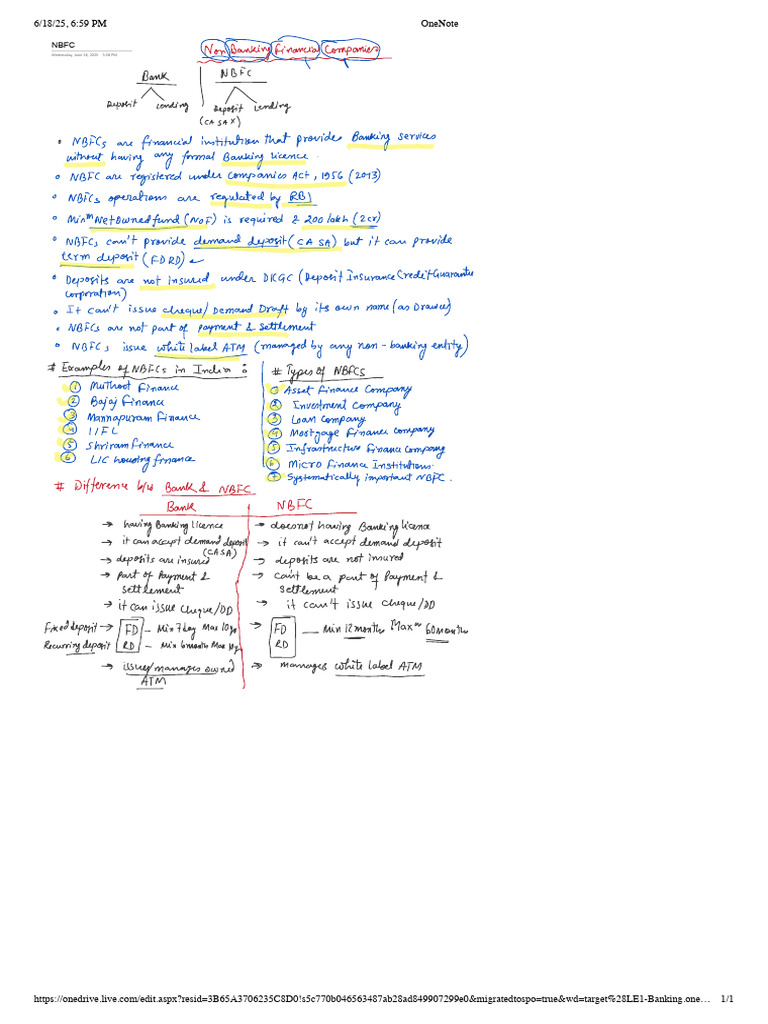 6/18/25, 6:59 PM OneNote
NBFC
Wednesday, June 18, 2025 5:58 PM
Non Banking Financial Companies
Bank NBFC
Deposit Lending Deposit Lending
(CASA X)
• NBFCs are financial institution that provides Banking services
without having any formal Banking licence.
• NBFC are registered under Companies Act, 1956 (2013)
• NBFCs operations are regulated by RBI
• Minm Net Owned fund (NOF) is required ₹ 200 lakh (2cr)
• NBFCs can't provide demand deposit (CASA) but it can provide
term deposit (FD RD)
• Deposits are not insured under DICGC (Deposit Insurance Credit Guarantee
Corporation)
• It can't issue cheque/Demand Draft by its own name (as Drawee)
• NBFCs are not part of payment & settlement
• NBFCs issue white label ATM (managed by any non-banking entity)
# Examples of NBFCs in India :
① Muthoot Finance
② Bajaj Finance
③ Mannapuram Finance
④ IIFL
⑤ Shriram finance
⑥ LIC housing finance
# Types of NBFCS
① Asset Finance Company
② Investment Company
③ Loan Company
④ Mostgage Finance company
⑤ Infrastructure Finance Company
⑥ Micro Finance Institutions.
⑦ Systematically important NBFC.
# Difference b/w Bank & NBFC
Bank NBFC
→ having Banking licence → doesnot having Banking licence
→ it can accept demand deposit → it can't accept demand deposit
(CASA)
→ deposits are insured → deposits are not insured
→ Part of Payment & → can't be a part of Payment &
settlement settlement
→ it can issue cheque/DD → it can't issue cheque/DD
Fixed deposit → FD – Min 7 day Max 10 yr → FD — Min 12 months Maxm 60 months
Recurring deposit RD – Min 6 month Max 10 yr RD
→ issues/manages owned → manages white label ATM
ATM
https://onedrive.live.com/edit.aspx?resid=3B65A3706235C8D0!s5c770b046563487ab28ad849907299e0&migratedtospo=true&wd=target%28LE1-Banking.one… 1/1